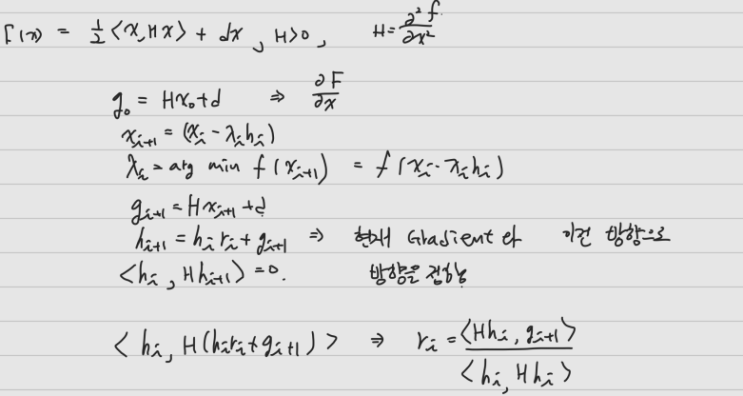 F(x) = 1/2 <x, Hx> + dx , H>0 , H = ∂²f/∂x²
g₀ = Hx₀+d ⇒ ∂F/∂x
xᵢ₊₁ = (xᵢ - λᵢhᵢ)
λᵢ = arg min f(xᵢ₊₁) = f(xᵢ - λᵢhᵢ)
gᵢ₊₁ = Hxᵢ₊₁ + d
hᵢ₊₁ = hᵢrᵢ + gᵢ₊₁ ⇒ 현재 Gradient 와 이전 방향으로
<hᵢ, Hhᵢ₊₁> = 0. 방향을 결정
<hᵢ, H(hᵢrᵢ+gᵢ₊₁)> ⇒ rᵢ = <Hhᵢ, gᵢ₊₁> / <hᵢ, Hhᵢ>